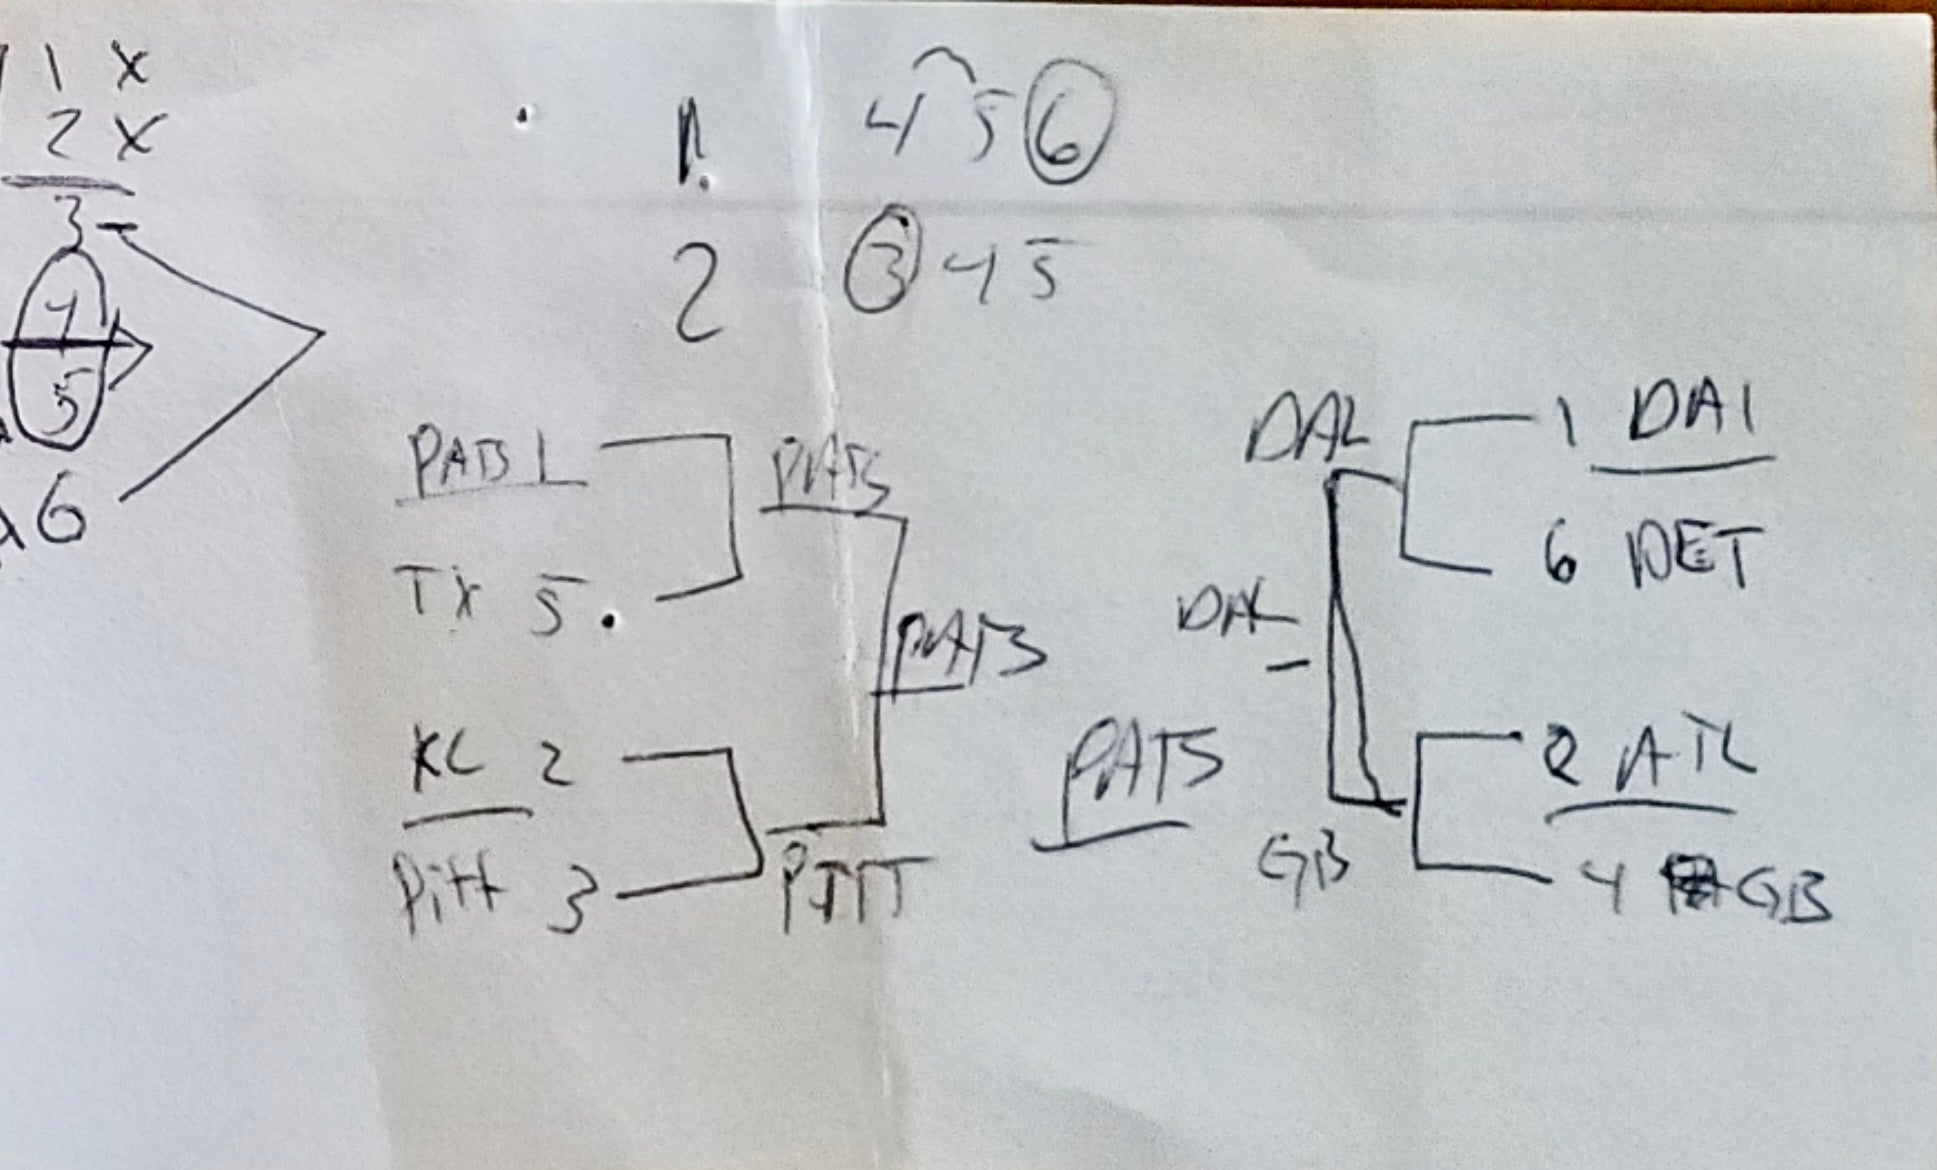 1 X
2 X
3
4
5
6
1. 4 5 6
2 3 4 5
PATS 1
TX 5.
KC 2
Pitt 3
PATS
PITT
PATS
PATS
DAL
DAL
GB
1 DAl
6 DET
2 ATL
4 GB